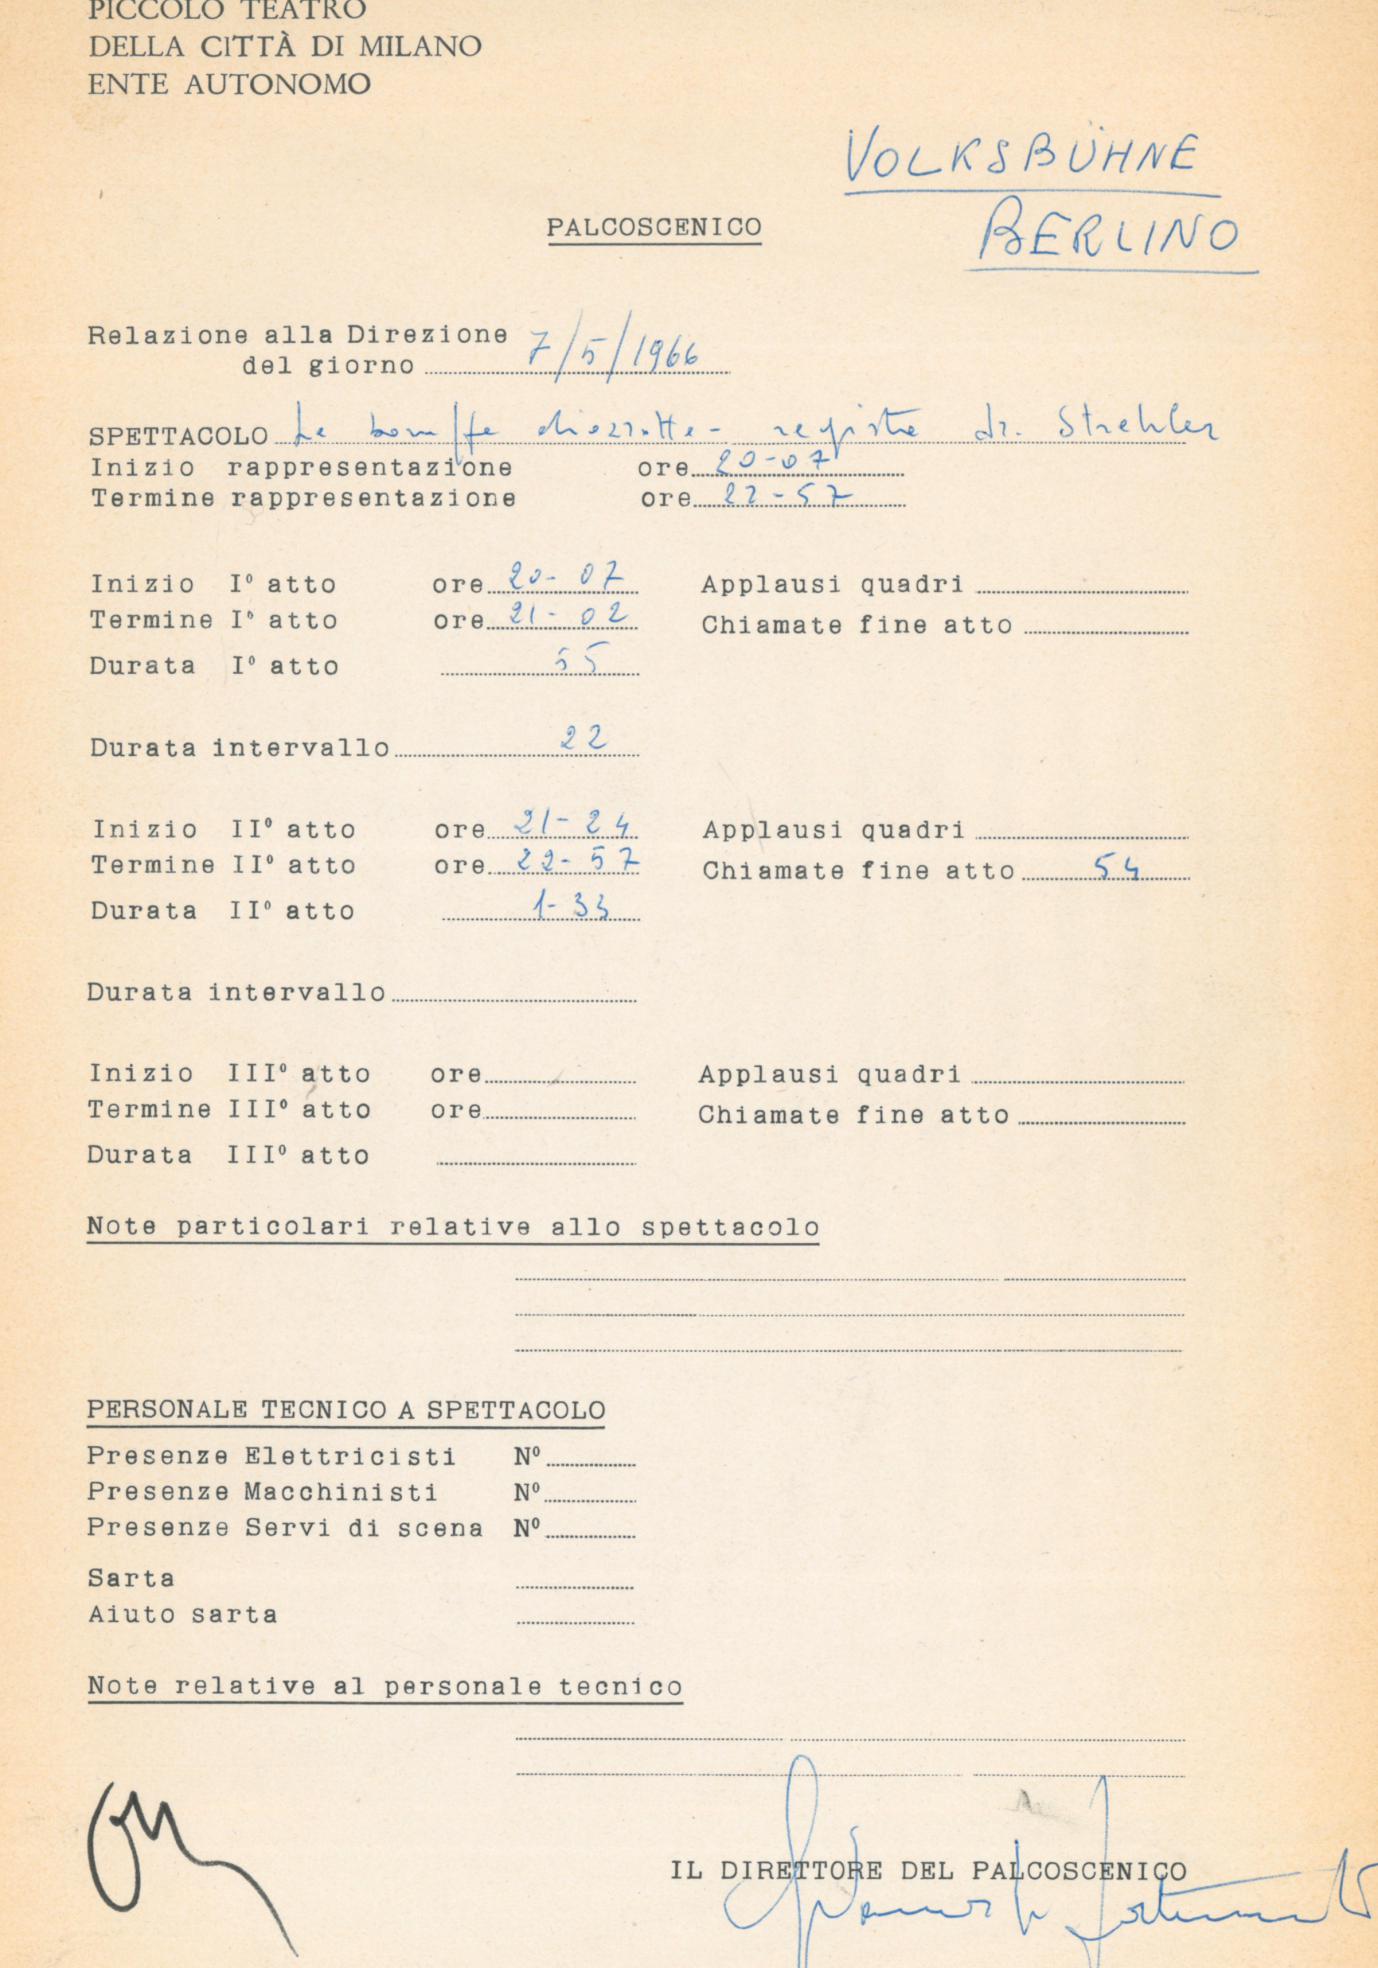 PICCOLO TEATRO
DELLA CITTÀ DI MILANO
ENTE AUTONOMO
VOLKSBÜHNE
BERLINO
PALCOSCENICO
Relazione alla Direzione
del giorno 7/5/1966
SPETTACOLO Le baruffe chiozzotte - regista dr. Strehler
Inizio rappresentazione ore 20-07
Termine rappresentazione ore 22-57
Inizio I° atto ore 20-07 Applausi quadri
Termine I° atto ore 21-02 Chiamate fine atto
Durata I° atto 55
Durata intervallo 22
Inizio II° atto ore 21-24 Applausi quadri
Termine II° atto ore 22-57 Chiamate fine atto 54
Durata II° atto 1-33
Durata intervallo
Inizio III° atto ore Applausi quadri
Termine III° atto ore Chiamate fine atto
Durata III° atto
Note particolari relative allo spettacolo
PERSONALE TECNICO A SPETTACOLO
Presenze Elettricisti N°
Presenze Macchinisti N°
Presenze Servi di scena N°
Sarta
Aiuto sarta
Note relative al personale tecnico
IL DIRETTORE DEL PALCOSCENICO